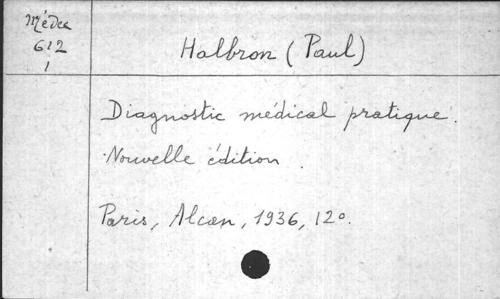 Médec
612
1
Halbron (Paul)
Diagnostic médical pratique.
Nouvelle édition
Paris, Alcan, 1936, 12°.